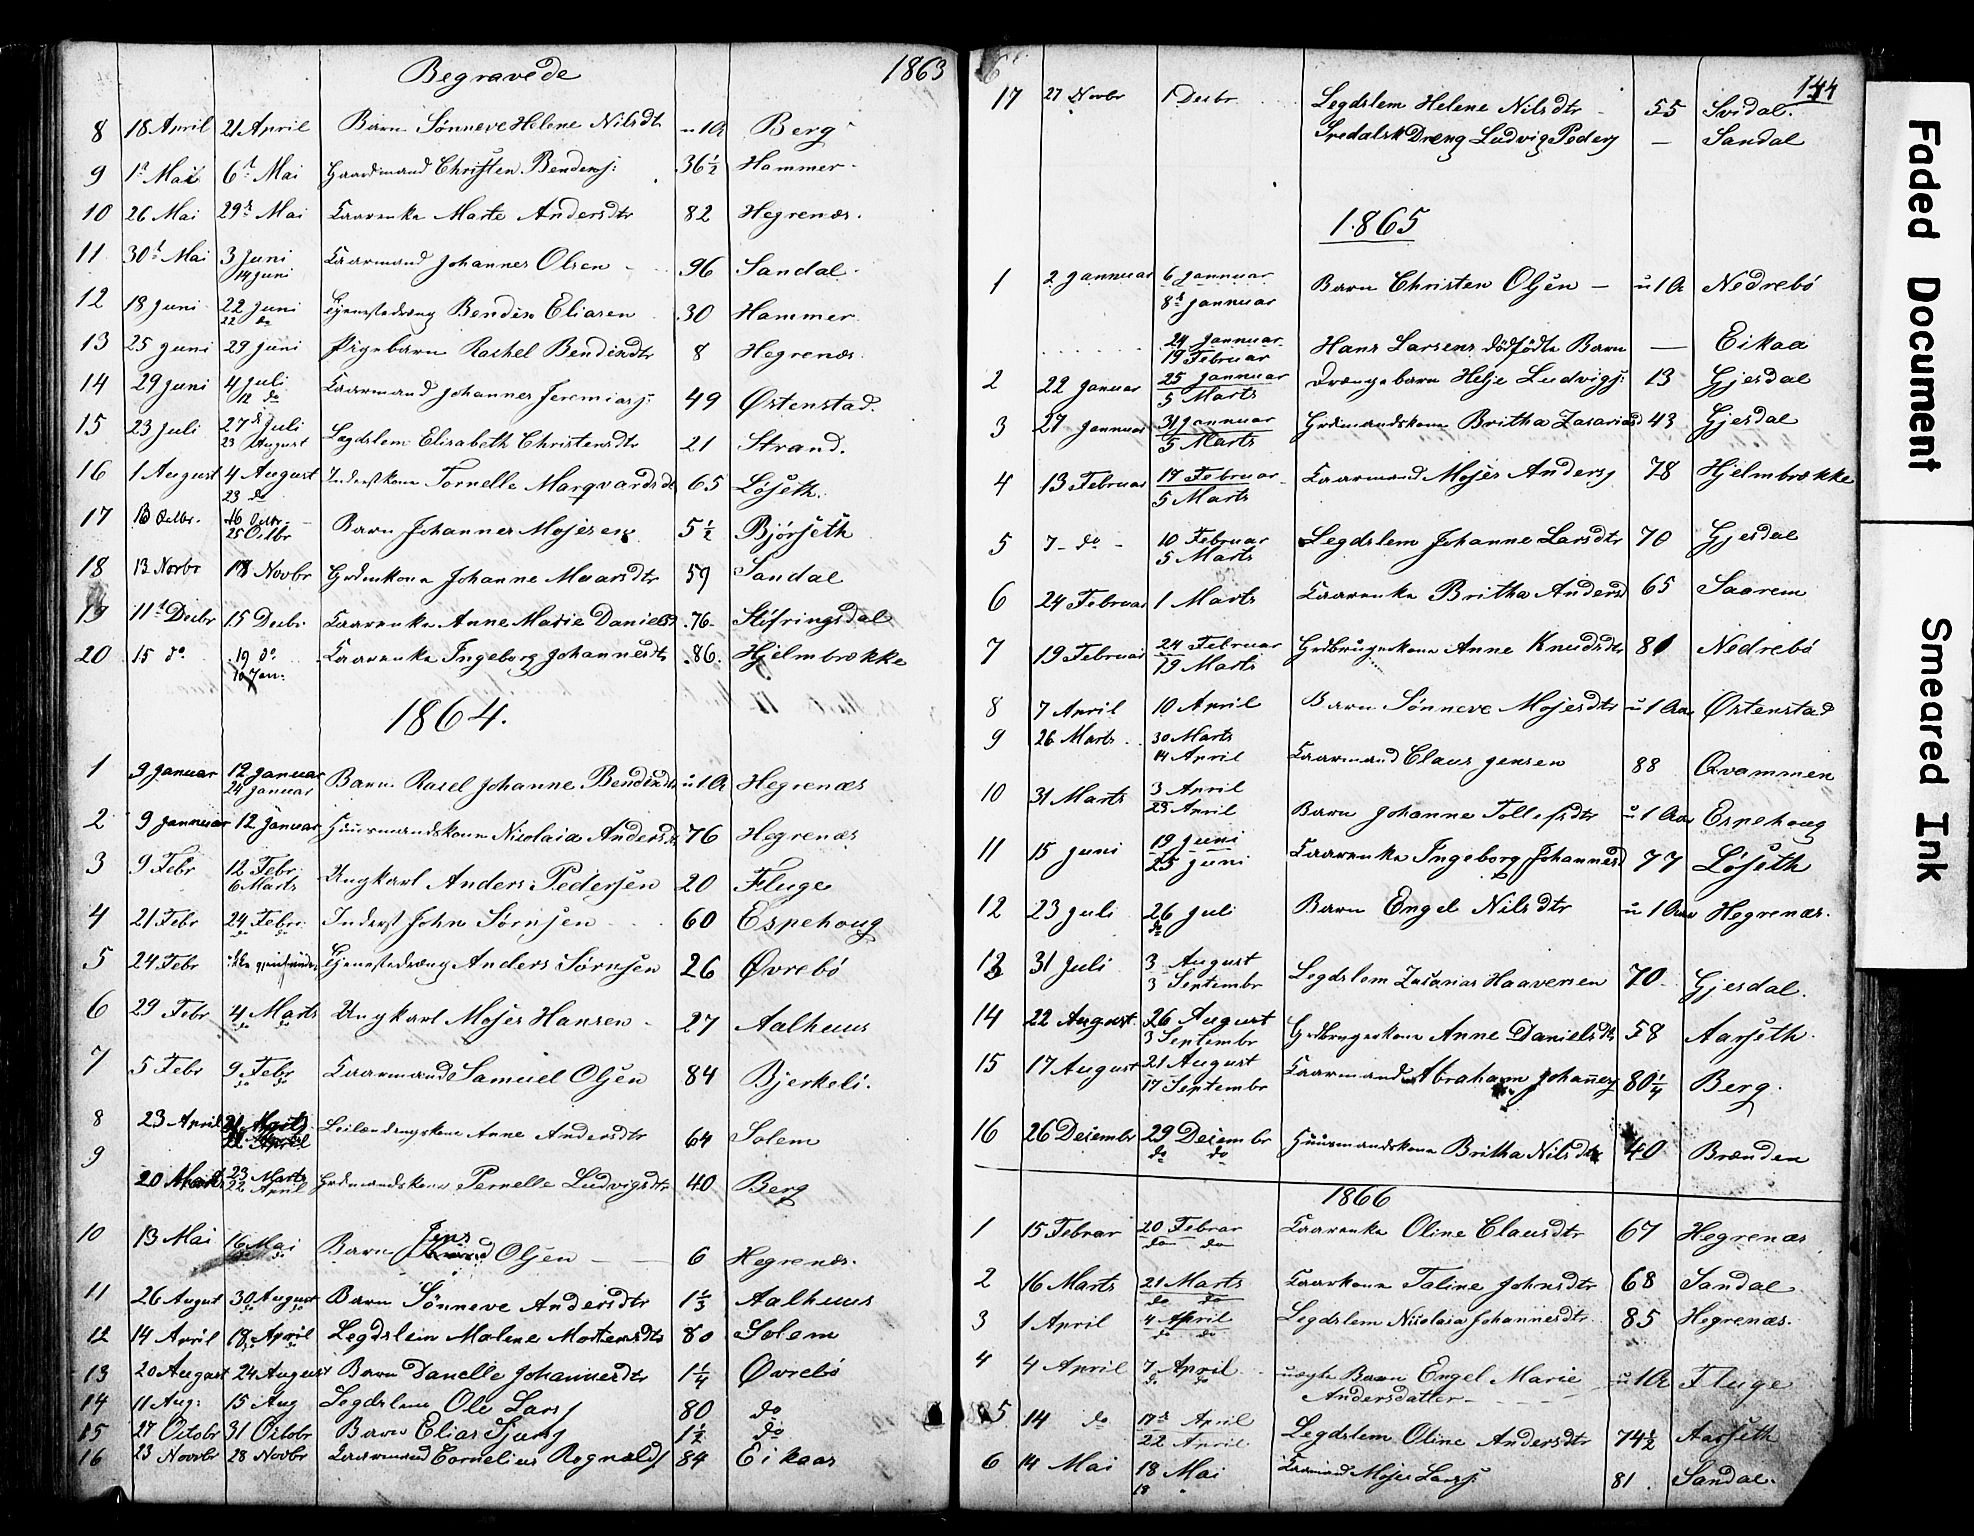 Begravede 1863
8 18 April 21 April Barn Sönneve Helene Nilsdt u 1 A Berg
9 1t Mai 6t Mai Gaardmand Christen Bendixs: 36½ Hammer
10 26 Mai 29de Mai Kaarenke Marte Andersdtr 82 Hegrenæs.
11 30t Mai 3 Juni Kaarmand Johannes Olsen 96 Sandal
14 Juni
12 18 Juni 22 Juni Tjenestedreng Bendix Eliasen 30 Hammer
22 do
13 25 Juni 29 Juni Pigebarn Rachel Bendixdtr 8 Hegrenæs.
14 29 Juni 4 Juli Kaarmand Johannes Jeremias: 49 Østenstad.
12 do
15 23 Juli 27de Juli Legdslem Elisabeth Christensdtr 21 Strand.
23 August
16 1 August 4 August Inderstkone Tornelle Marqvardsdt 65 Löseth.
23 do
17 13 Octbr. 16 Octbr. Barn Johannes Mosesen 5½ Bjørseth
25 Octbr
18 13 Novbr 18 Novbr Grdmkone Johanne Maarsdtr 59 Sandal
19 11t Decbr 15 Decbr Kaarenke Anne Marie Danielsd 76 Stöfringsdal
20 15 do 19 do Kaarenke Ingeborg Johannesdtr 86. Hjelmbrække
10 Jan:
1864.
1 9 Januar 12 Januar Barn Rasel Johanne Bendixdtr u 1 A Hegrenæs
24 Januar
2 9 Jannuar 12 Januar Huusmandskone Nicolaia Andersdt 76 Hegrenæs
3 9 Febr 12 Febr. Ungkarl Anders Pedersen 20 Fluge
6 Marts
4 21 Febr 24 Febr. Inderst John Sörnsen 60 Espehoug
do do
5 24 Febr Tjenestedreng Anders Sörnsen 26 Øvrebö
6 29 Febr 4 Marts Ungkarl Moses Hansen 27 Aalhuus
do do
7 5 Febr 9 Febr Kaarmand Samuel Olsen 84 Bjerkeli.
do do
8 23 April 22 April Leilændingskone Anne Andersdtr 64 Solem
9
20 Marts 23 Marts Grdmandskone Pernelle Ludvigsdtr 40 Berg
22 April
10 13 Mai 16 Mai Barn Jens Olsen 6 Hegrenæs.
11 26 August 30 August Barn Sönneve Andersdtr 1⅓ Aalhuus
do do
12 14 April 18 April Legdslem Malene Mortensdtr 80 Solem
do do
13 20 August 24 August Barn Danelle Johannesdtr 1¼ Øvrebö
14 11 Aug: 15 Aug Legdslem Ole Lars 80 do
15 27 Octobr 31 Octobr Barn Elias Sjurs 1½ do
16 23 Novbr 28 Novbr Kaarmand Cornelius Rognalds 84 Eikaas
144
17 27 Novbr 1 Decbr Legdslem Helene Nilsdtr 55 Svidal.
Dreng Ludvig Peders — Sandal
1865
1 2 Jannuar 6 Jannuar Barn Christen Olsen — u 1 A Nedrebö
8de Jannuar
24 Jannuar Hans Larsens dödfödte Barn — Eikaa
19 Februar
2 22 Januar 25 Jannuar Drængebarn Helje Ludvigs: 13 Gjesdal
5 Marts
3 27 Jannuar 31 Jannuar Grdmandskone Britha Zasariasd 43 Gjesdal
5 Marts
4 13 Februar 17 Februar Kaarmand Moses Anders 78 Hjelmbrække
5 Marts
5 7 do 10 Februar Legdslem Johanne Larsdtr 70 Gjesdal
5 Marts
6 24 Februar 1 Marts Kaarenke Britha Andersd 65 Saarem
7 19 Februar 24 Februar Grdbrugerkone Anne Knudsdtr 81 Nedrebö
19 Marts
8 7 April 10 April Barn Sönneve Mosesdtr u 1 Aar Østenstad
9 26 Marts 30 Marts Kaarmand Claus Jensen 88 Qvammen
14 April
10 31 Marts 3 April Barn Johanne Tollefsdtr u 1 Aar Espehoug
23 April
11 15 Juni 19 Juni Kaarenke Ingeborg Johannesd 77 Löseth
25 Juni
12 23 Juli 26 Juli Barn Engel Nilsdtr u 1 Aar Hegrenæs.
do
13 31 Juli 3 August Legdslem Zasarias Haavenen 70 Gjesdal.
3 Septembr
14 22 August 26 August Grdbrugerkone Anne Danielsdtr 58 Aarseth
3 Septembr
15 17 August 21 August Kaarmand Abraham Johannes 80¼ Berg.
17 Septembr
16 26 Desembr 29 Desembr Huusmandskone Britha Nilsdtr 40 Brænden
do do
1866
1 15 Februar 20 Februar Kaarenke Oline Clausdtr 67 Hegrenæs
do do
2 16 Marts 21 Marts Kaarkone Taline Johnsdtr 68 Sandal
do do
3 1 April 4 April Legdslem Nicolaia Johannesdtr 85 Hegrenæs.
do do
4 4 April 7 April uægte Barn Engel Marie u 1 A Fluge
do do Andersdatter
5 14 do 17de April Legdslem Oline Andersdtr 74½ Aarseth
22 April
6 14 Mai 18 Mai Kaarmand Moses Lars: 81. Sandal.
18
Faded Document
Smeared Ink